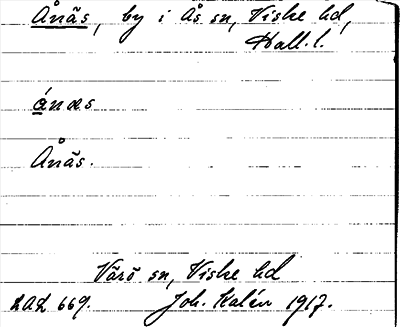 Ånäs, by i Ås sn, Viske hd,
Hall. l.
ánæs
Ånäs.
Värö sn, Viske hd
LAL 669. Joh. Kalén 1917.